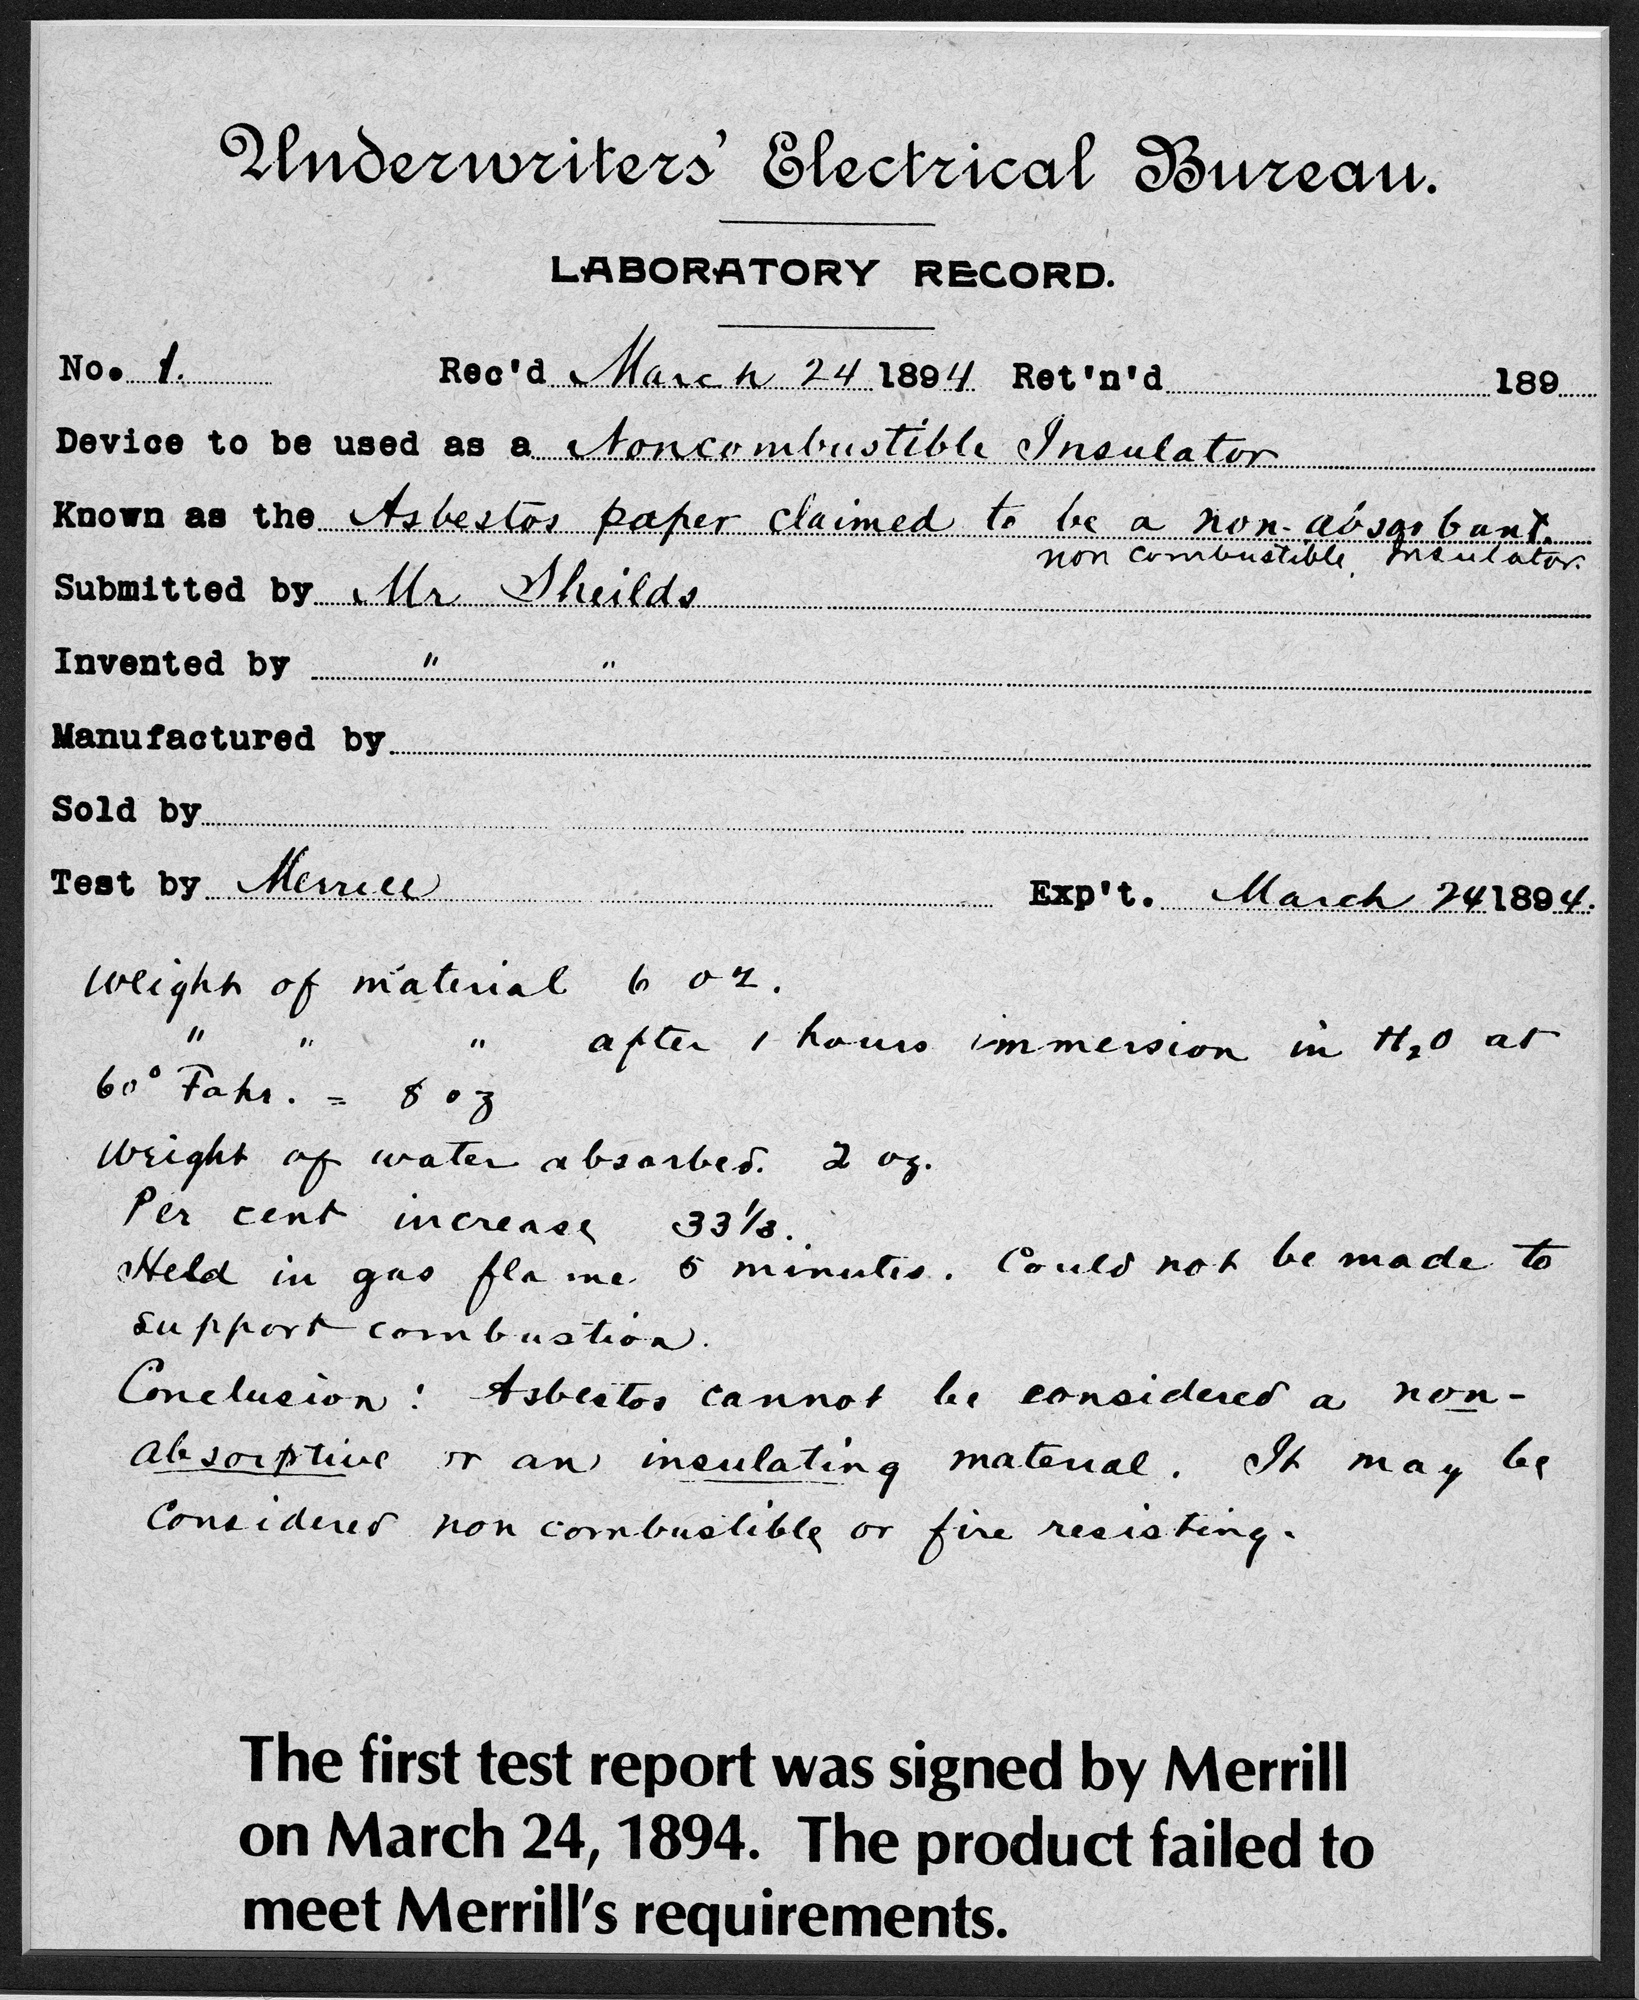 Underwriters' Electrical Bureau.
LABORATORY RECORD.
No. 1. Rec'd March 24 1894 Ret'n'd 189
Device to be used as a Noncombustible Insulator
Known as the Asbestos paper claimed to be a non-absorbant.
non combustible, Insulator.
Submitted by Mr Sheilds
Invented by " "
Manufactured by
Sold by
Test by Merrill Exp't. March 24 1894.
Weight of material 6 oz.
" " " after 1 hours immersion in H₂O at
60° Fahr. = 8 oz
Weight of water absorbed. 2 oz.
Per cent increase 33 1/3.
Held in gas flame 5 minutes. Could not be made to
support combustion.
Conclusion: Asbestos cannot be considered a non-
absorptive or an insulating material. It may be
considered non combustible or fire resisting.
The first test report was signed by Merrill
on March 24, 1894. The product failed to
meet Merrill's requirements.